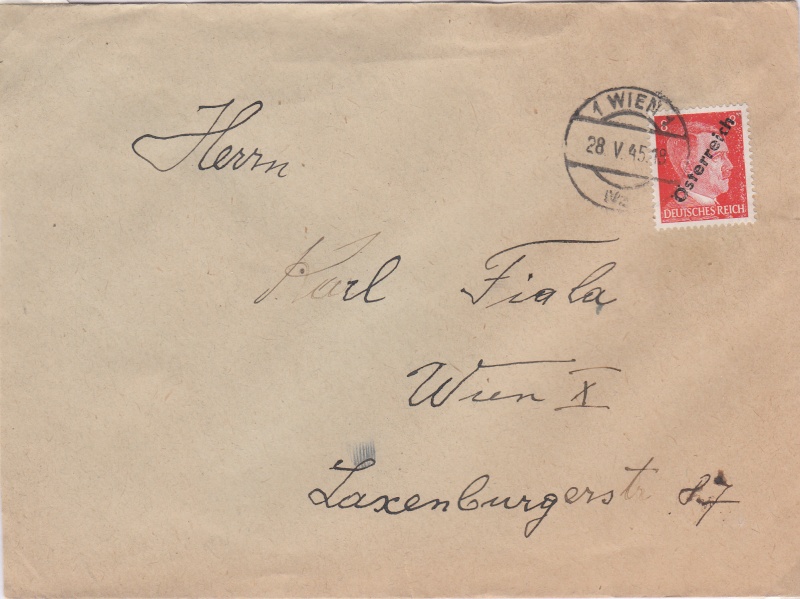 1 WIEN
28. V. 45.18
8
Österreich
DEUTSCHES REICH
Herrn
Karl Fiala
Wien X
Laxenburgerstr 87